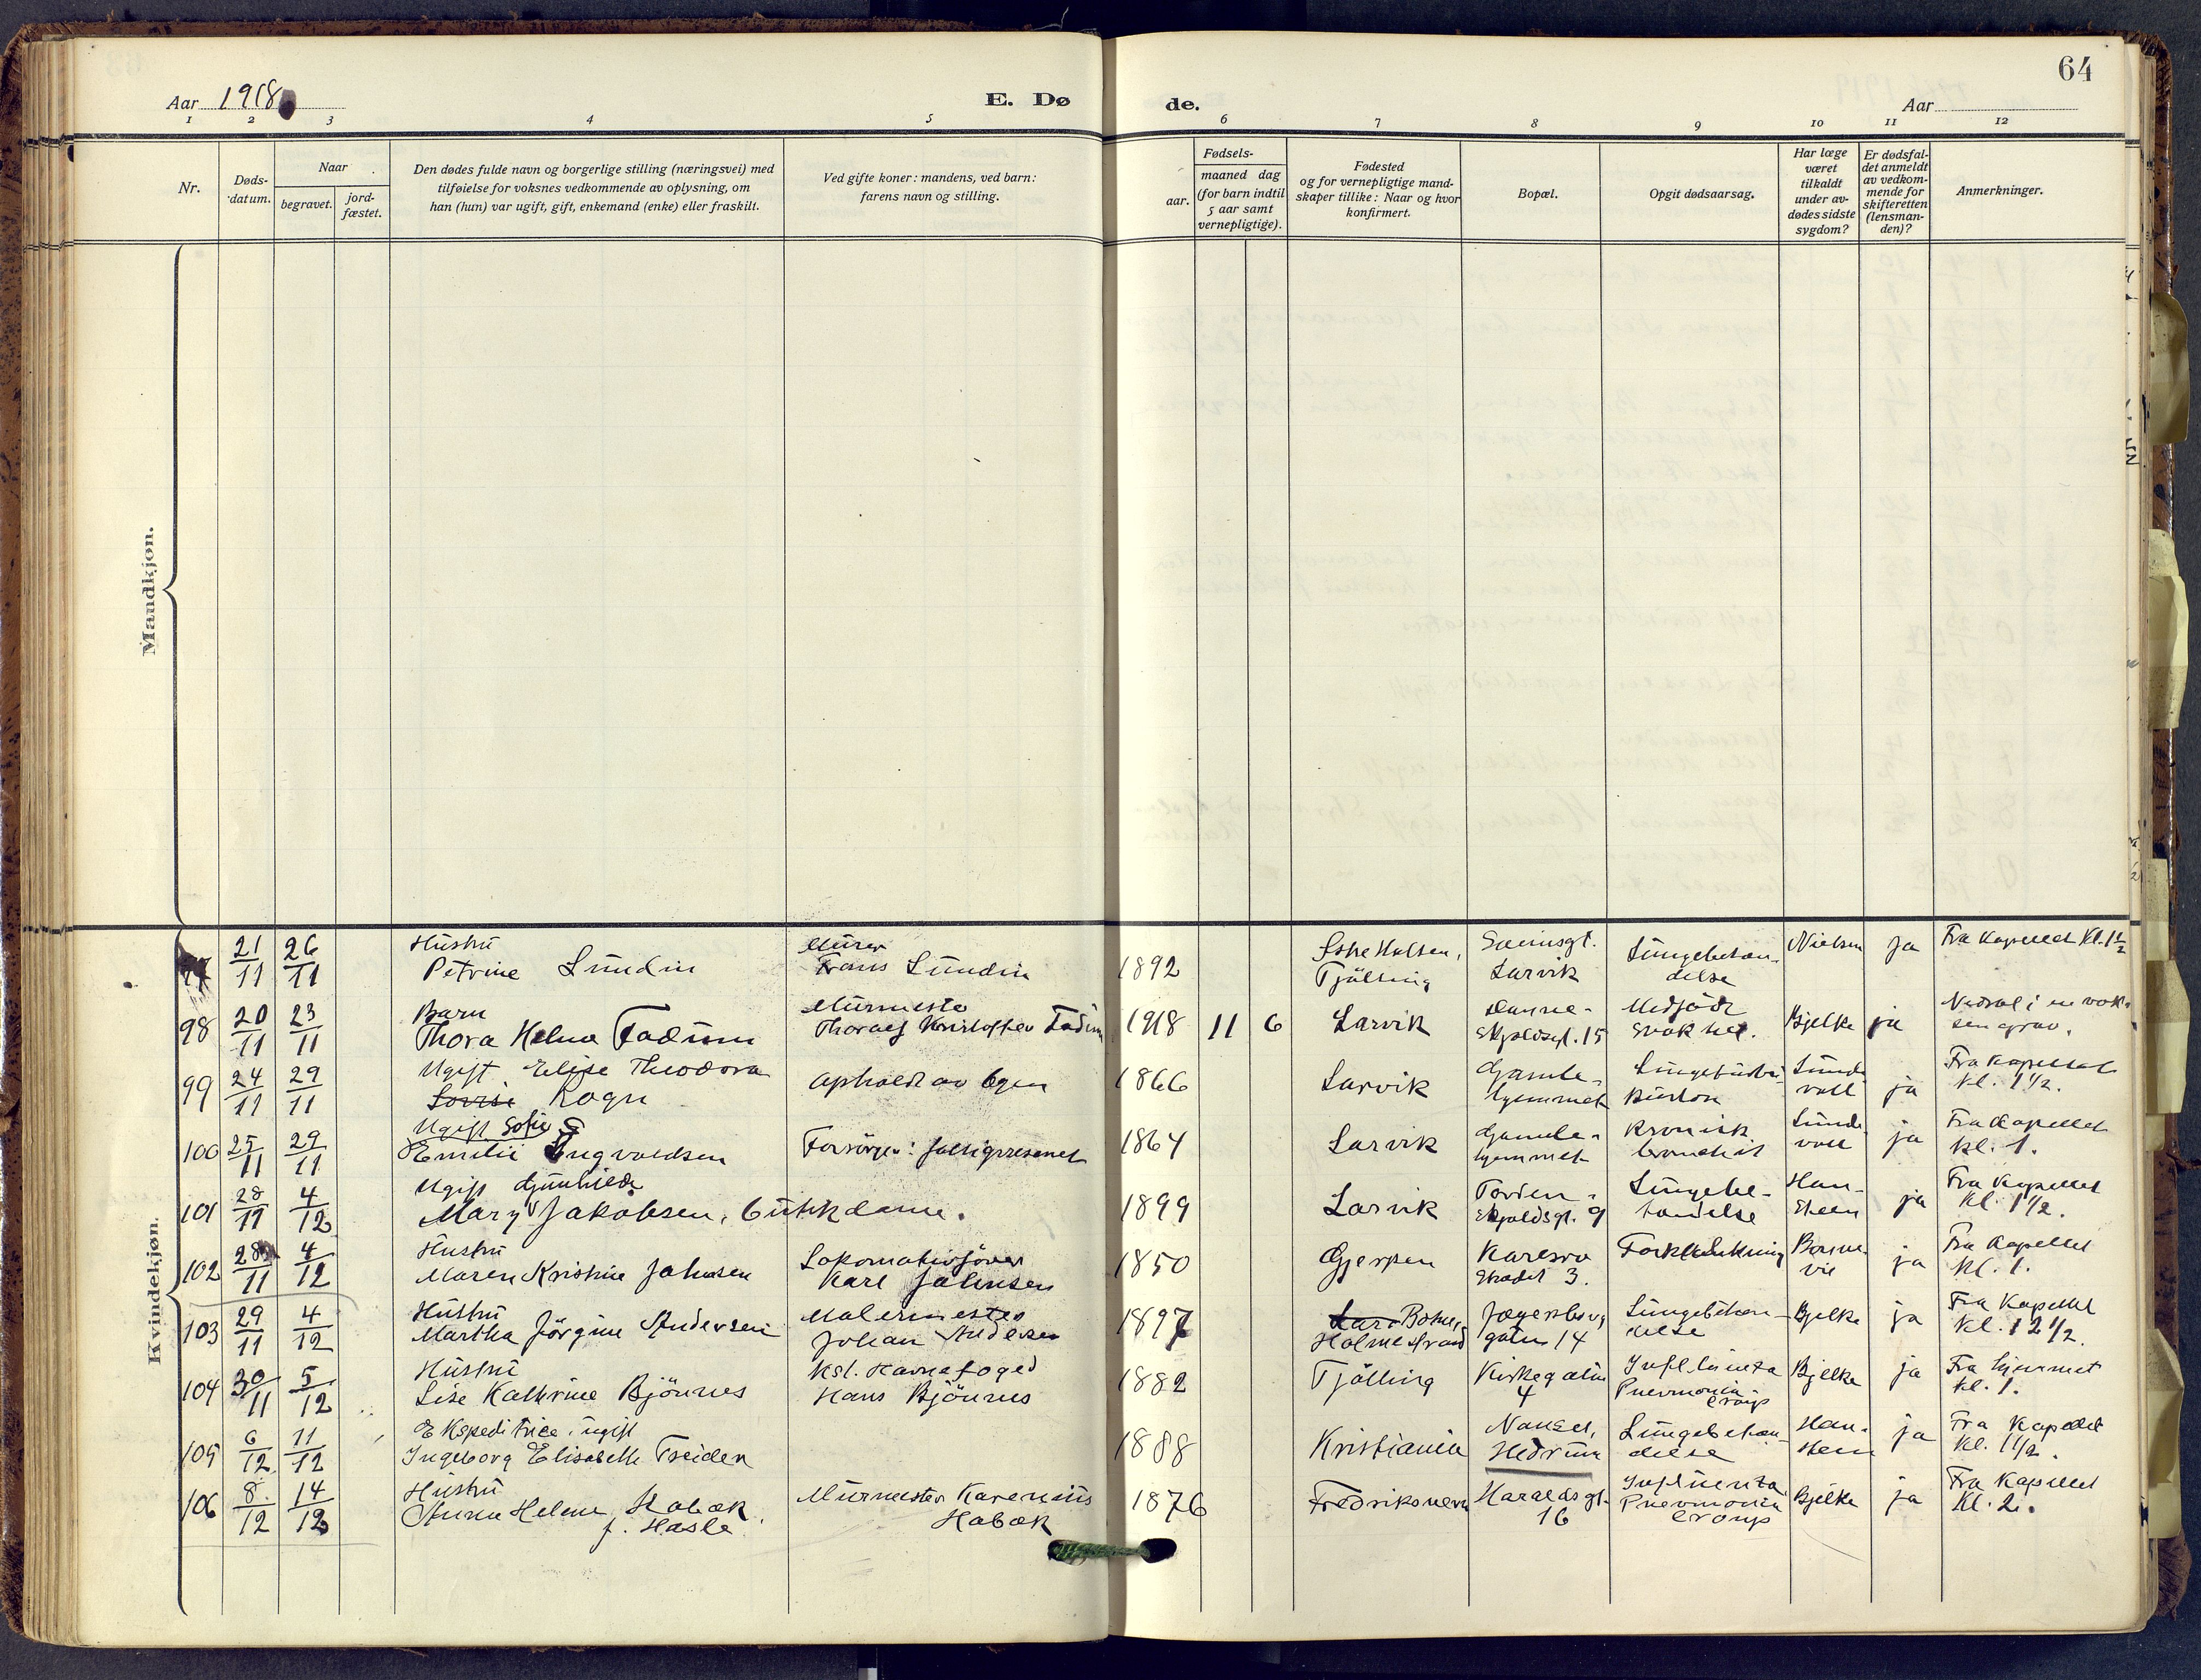 64
Aar 1918
E. Dø
de.
Aar
1 2 3 4 5 6 7 8 9 10 11 12
Nr.
Døds-
datum.
Naar
begravet.
jord-
fæstet.
Den dødes fulde navn og borgerlige stilling (næringsvei) med
tilføielse for voksnes vedkommende av oplysning, om
han (hun) var ugift, gift, enkemand (enke) eller fraskilt.
Ved gifte koner: mandens, ved barn:
farens navn og stilling.
Fødsels-
aar.
maaned dag
(for barn indtil
5 aar samt
vernepligtige).
Fødested
og for vernepligtige mand-
skaper tillike: Naar og hvor
konfirmert.
Bopæl.
Opgit dødsaarsag.
Har læge
været
tilkaldt
under av-
dødes sidste
sygdom?
Er dødsfal-
det anmeldt
av vedkom-
mende for
skifteretten
(lensman-
den)?
Anmerkninger.
Mandkjøn.
Kvindekjøn.
97 21/11 26/11 Hustru
Petrine Lundin
Murer
Frans Lundin
1892
Tjølling
Larvik
Lungebetæn-
delse
Nielsen ja Fra Kapellet Kl. 1 1/2
98 20/11 23/11 Barn
Thora Helene Fadum
Murmester
Thoralf Kristoffer Fadum
1918 11 6 Larvik
Danne-
skjoldsgt. 15
Medfødt
svakhet.
Bjelke ja
Nedsat i en vok-
sen grav.
99 24/11 29/11 Ugift Elise Theodora
Lovise Rogn
Ophold av Egen
1866 Larvik
Gamle-
hjemmet
Lunde-
voll
ja
Fra Kapellet
kl. 1 1/2.
100 25/11 29/11 Ugift Sofie
Emilie Ingvaldsen
Forsørges: fattigvesenet
1864 Larvik
Gamle-
hjemmet
Kronisk
bronchit
Lunde-
voll
ja
Fra Kapellet
kl. 1.
101 28/11 4/12 Ugift Gunhilde
Mary Jakobsen, Butikdame.
1899 Larvik
Torden-
skjoldsgt. 9
Lungebe-
tændelse
Han-
steen
ja
Fra Kapellet
Kl. 1 1/2.
102 28/11 4/12 Hustru
Maren Kristine Johnsen
Lokomotivfører
Karl Johnsen
1850 Gjerpen
Karlsro
Stradet 3.
Forkalkning
Bonne-
vie
ja
Fra Kapellet
Kl. 1.
103 29/11 4/12 Hustru
Martha Jørgine Andersen
Malermester
Johan Andersen
1897
Holmestrand
Jægersborg
gaten 14
Lungebetæn-
delse
Bjelke ja
Fra Kapellet
Kl. 12 1/2.
104 30/11 5/12 Hustru
Lise Kathrine Bjönnes
Kst. Havnefoged
Hans Bjönnes
1882 Tjølling
Kirkegaten
4
Influenza
Pneumonia
croup
Bjelke ja
Fra hjemmet
kl. 1.
105 6/12 11/12 Ekspeditrice, ugift
Ingeborg Elisabeth Treider
1888 Kristiania
Nanset,
Hedrum
Lungebetæn-
delse
Han-
steen
ja
Fra Kapellet
kl. 1 1/2.
106 8/12 14/12 Hustru
Anna Helene Habæk
f. Hasle
Murmester Karenius
Habæk
1876 Fredriksvern
Haraldsgt.
16
Influenza
Pneumonia
croup
Bjelke ja
Fra Kapellet
Kl. 2.